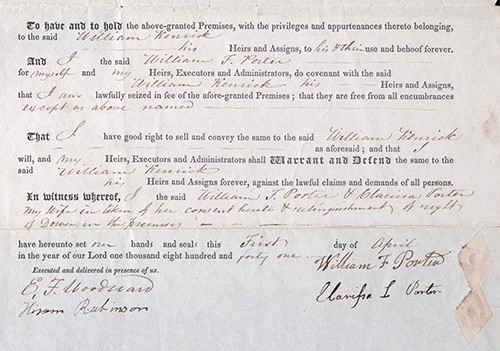 To have and to hold the above-granted Premises, with the privileges and appurtenances thereto belonging,
to the said William Kenrick
his Heirs and Assigns, to his & their use and behoof forever.
And I the said William F. Porter
for myself and my Heirs, Executors and Administrators, do covenant with the said
William Kenrick his Heirs and Assigns,
that I am lawfully seized in fee of the afore-granted Premises; that they are free from all encumbrances
except as above named
That I have good right to sell and convey the same to the said William Kenrick
as aforesaid; and that I
will, and my Heirs, Executors and Administrators shall Warrant and Defend the same to the
said William Kenrick
his Heirs and Assigns forever, against the lawful claims and demands of all persons.
In witness whereof, I the said William F. Porter & Clarissa Porter
my Wife in token of her consent hereto & relinquishment of right
of Dower in the premises
have hereunto set our hands and seals this First day of April
in the year of our Lord one thousand eight hundred and forty one.
William F Porter
Executed and delivered in presence of us.
E. F. Woodward
Clarissa L Porter
Hiram Robinson